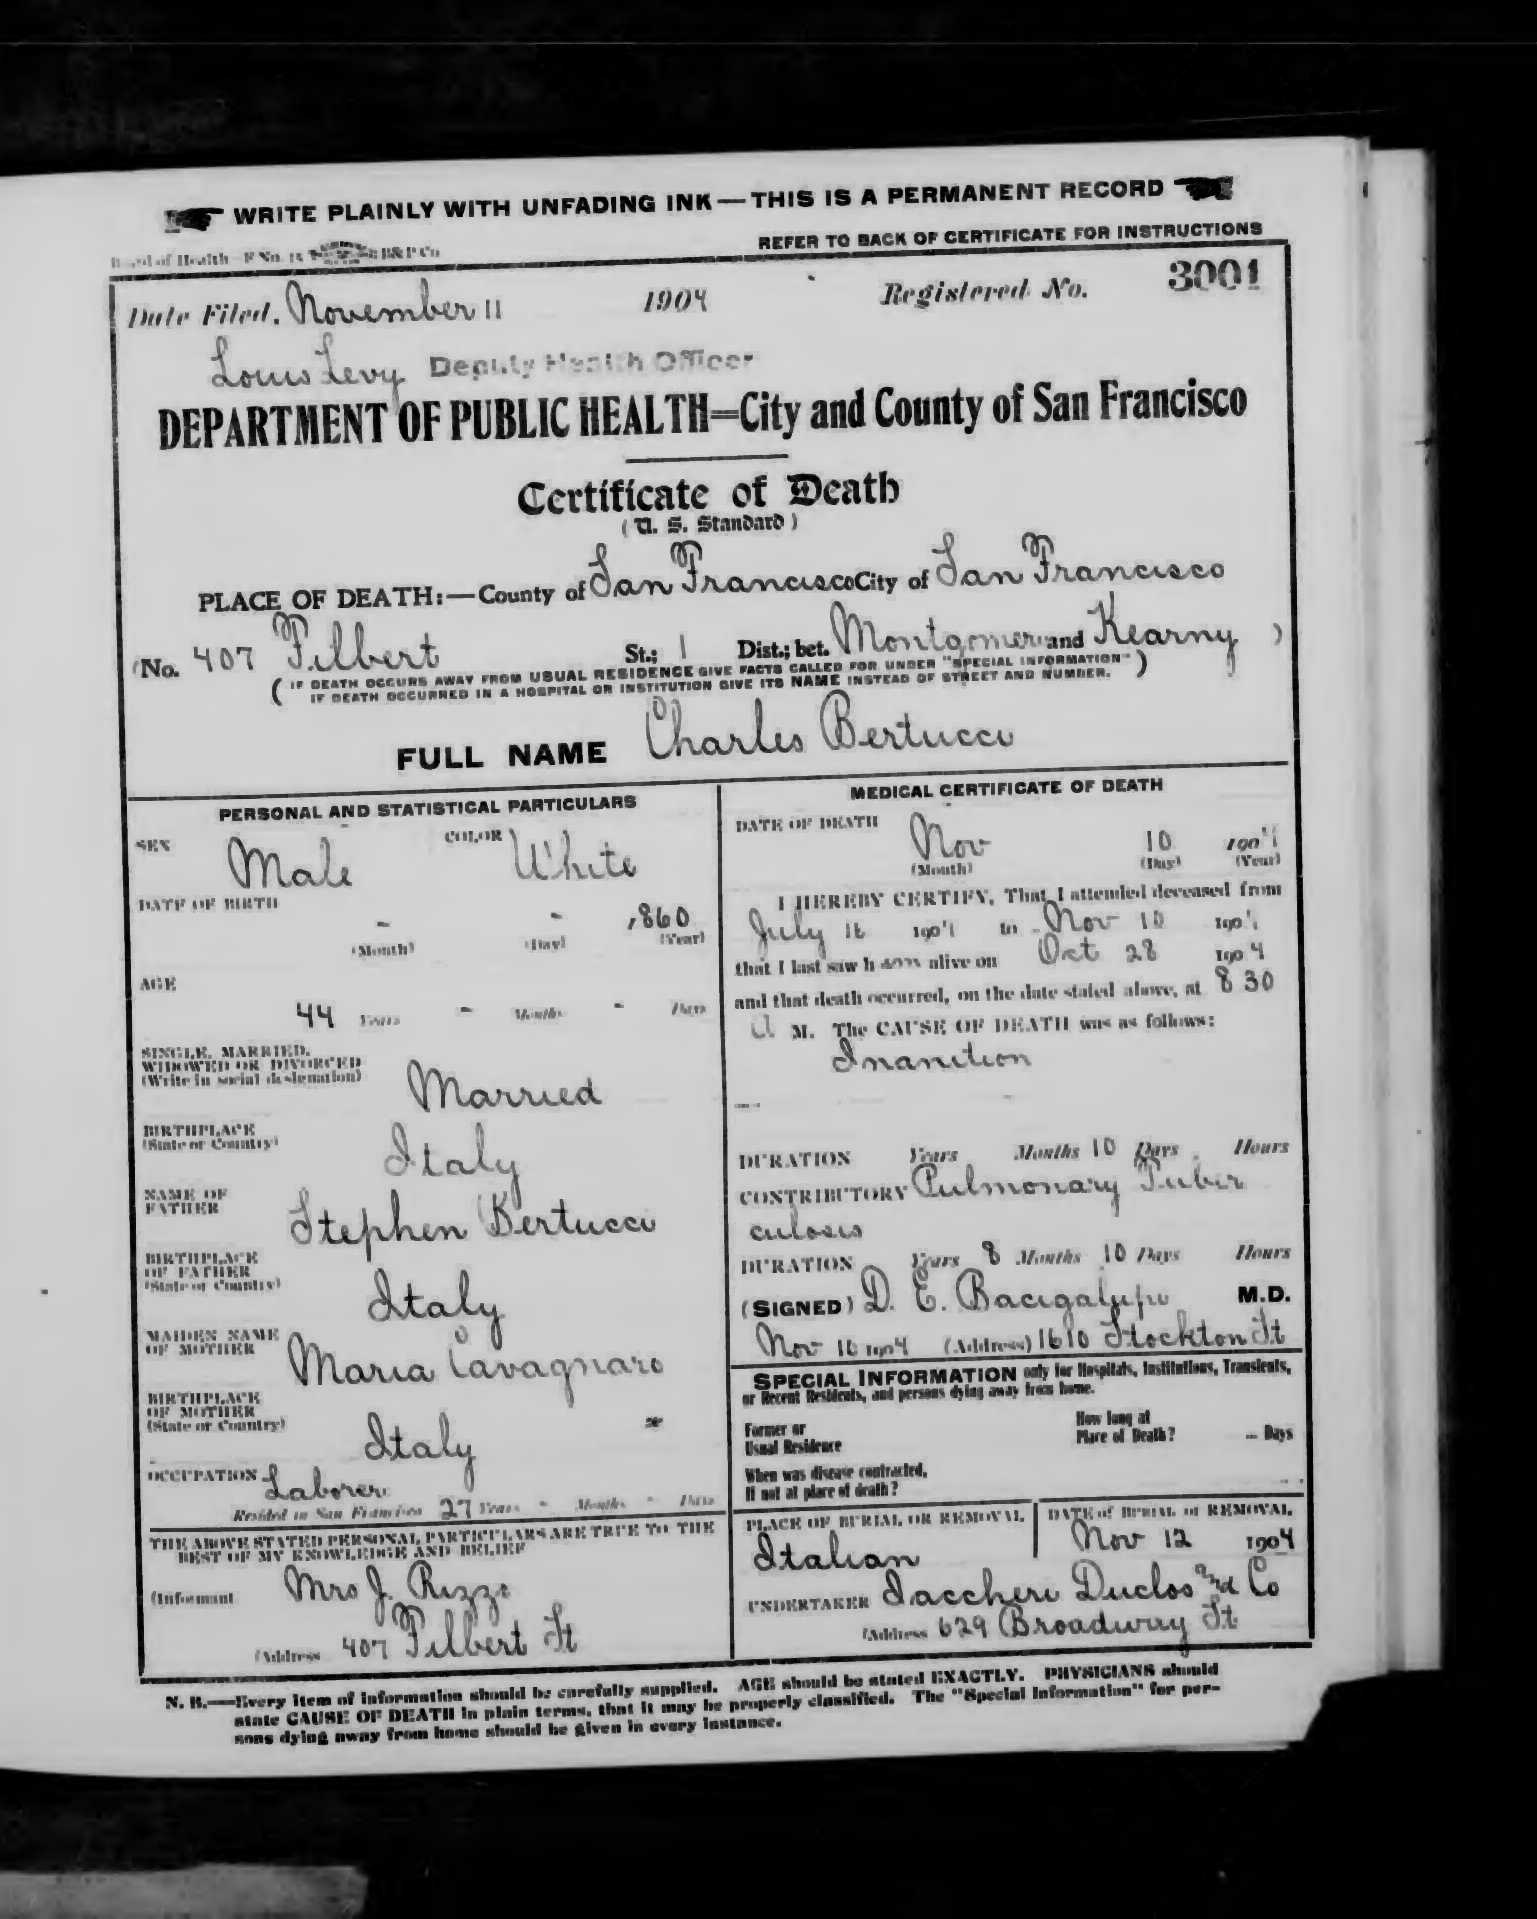 WRITE PLAINLY WITH UNFADING INK — THIS IS A PERMANENT RECORD
Board of Health—F No. 15 B&P Co
REFER TO BACK OF CERTIFICATE FOR INSTRUCTIONS
Date Filed, November 11 1904 Registered No. 3001
Louis Levy Deputy Health Officer
DEPARTMENT OF PUBLIC HEALTH=City and County of San Francisco
Certificate of Death
(U. S. Standard)
PLACE OF DEATH:—County of San Francisco City of San Francisco
(No. 407 Filbert St.; 1 Dist.; bet. Montgomery and Kearny )
( IF DEATH OCCURS AWAY FROM USUAL RESIDENCE GIVE FACTS CALLED FOR UNDER "SPECIAL INFORMATION" )
IF DEATH OCCURRED IN A HOSPITAL OR INSTITUTION GIVE ITS NAME INSTEAD OF STREET AND NUMBER.
FULL NAME Charles Bertucci
PERSONAL AND STATISTICAL PARTICULARS
SEX Male COLOR White
DATE OF BIRTH - - 1860
(Month) (Day) (Year)
AGE
44 Years - Months - Days
SINGLE, MARRIED,
WIDOWED OR DIVORCED
(Write in social designation) Married
BIRTHPLACE
(State or Country) Italy
NAME OF
FATHER Stephen Bertucci
BIRTHPLACE
OF FATHER
(State or Country) Italy
MAIDEN NAME
OF MOTHER Maria Cavagnaro
BIRTHPLACE
OF MOTHER
(State or Country) Italy
OCCUPATION Laborer
Resided in San Francisco 27 Years - Months - Days
THE ABOVE STATED PERSONAL PARTICULARS ARE TRUE TO THE
BEST OF MY KNOWLEDGE AND BELIEF
(Informant Mrs J. Rizzo
(Address 407 Filbert St
MEDICAL CERTIFICATE OF DEATH
DATE OF DEATH
Nov 10 1904
(Month) (Day) (Year)
I HEREBY CERTIFY, That I attended deceased from
July 16 1904 to Nov 10 1904
that I last saw h alive on Oct 28 1904
and that death occurred, on the date stated above, at 8 30
A M. The CAUSE OF DEATH was as follows:
Inanition
DURATION Years Months 10 Days Hours
CONTRIBUTORY Pulmonary Tuber
culosis
DURATION Years 8 Months 10 Days Hours
(SIGNED) D. E. Bacigalupi M.D.
Nov 10 1904 (Address) 1610 Stockton St
SPECIAL INFORMATION only for Hospitals, Institutions, Transients,
or Recent Residents, and persons dying away from home.
Former or
Usual Residence
How long at
Place of Death? Days
When was disease contracted,
If not at place of death?
PLACE OF BURIAL OR REMOVAL
Italian
DATE of BURIAL or REMOVAL
Nov 12 1904
UNDERTAKER Iaccheri Duclos and Co
(Address 629 Broadway St
N. B.—Every item of information should be carefully supplied. AGE should be stated EXACTLY. PHYSICIANS should
state CAUSE OF DEATH in plain terms, that it may be properly classified. The "Special Information" for per-
sons dying away from home should be given in every instance.